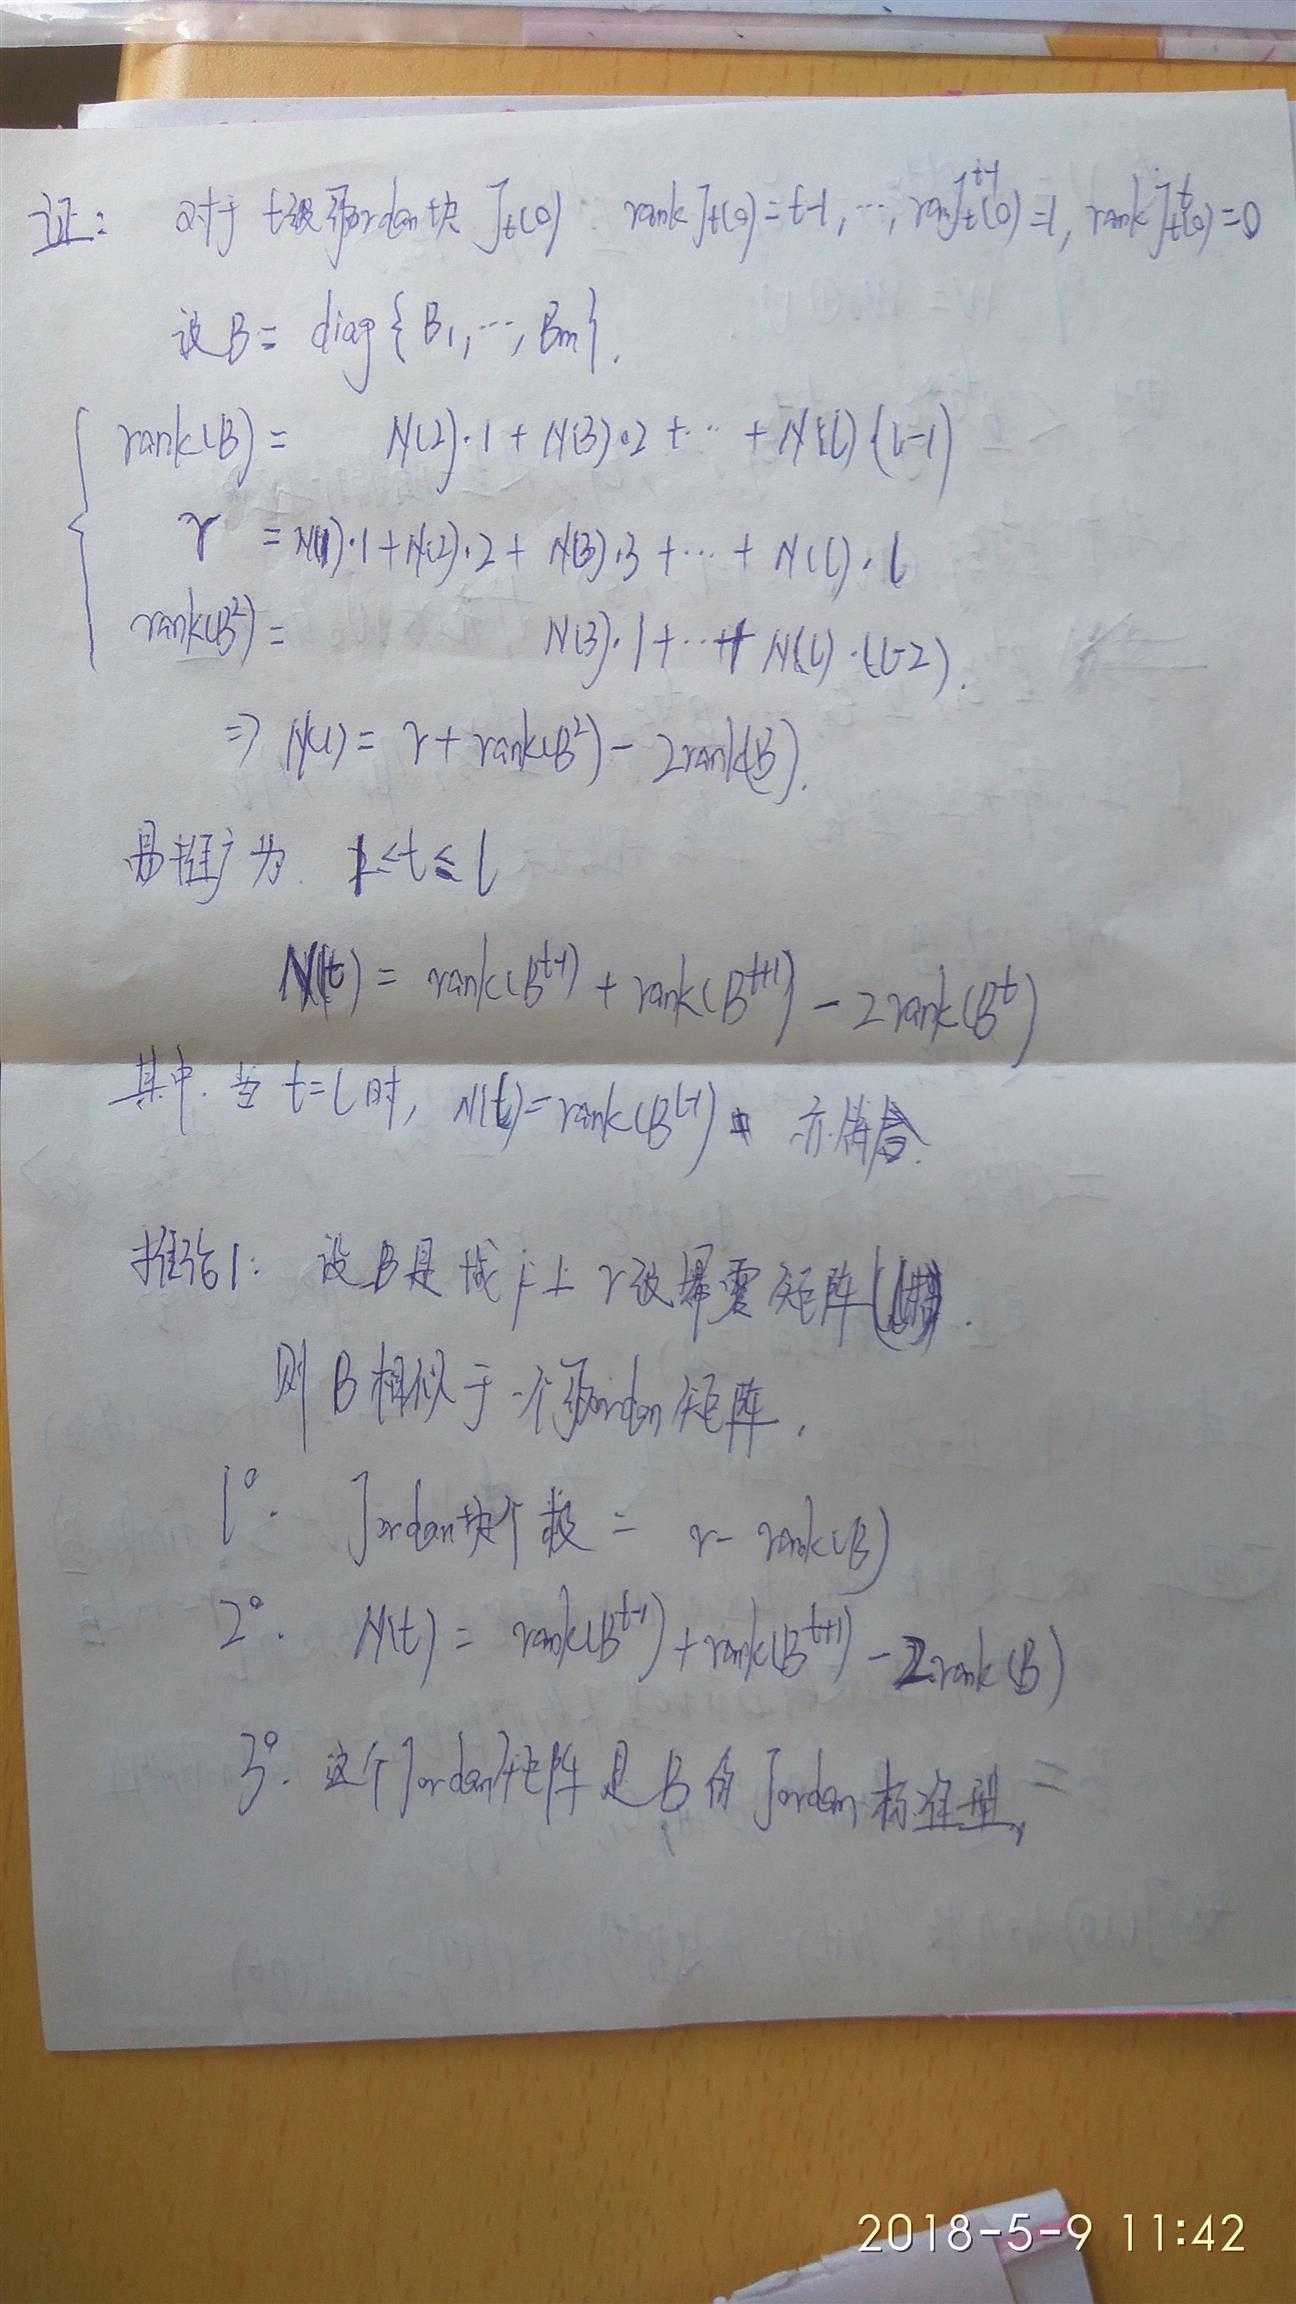 证: 对于t级Jordan块 J_t(0) rank J_t(0)=t-1, …, rank J_t^{t-1}(0)=1, rank J_t^t(0)=0
设B= diag{B_1, …, B_m}.
rank(B)= N(2)·1+N(3)·2+…+N(l)(l-1)
r =N(1)·1+N(2)·2+N(3)·3+…+N(l)·l
rank(B^2)= N(3)·1+…+N(l)·(l-2).
⇒ N(1)= r+rank(B^2)-2rank(B).
易推广为 1≤t≤l
N(t)= rank(B^{t-1})+rank(B^{t+1})-2rank(B^t)
其中. 当t=l时, N(t)=rank(B^{l-1}) 亦符合.
推论1: 设B是域F上r级幂零矩阵.
则B相似于一个Jordan矩阵.
1°. Jordan块个数= r-rank(B)
2°. N(t)= rank(B^{t-1})+rank(B^{t+1})-2rank(B)
3°. 这个Jordan矩阵是B的Jordan标准型,
2018-5-9 11:42